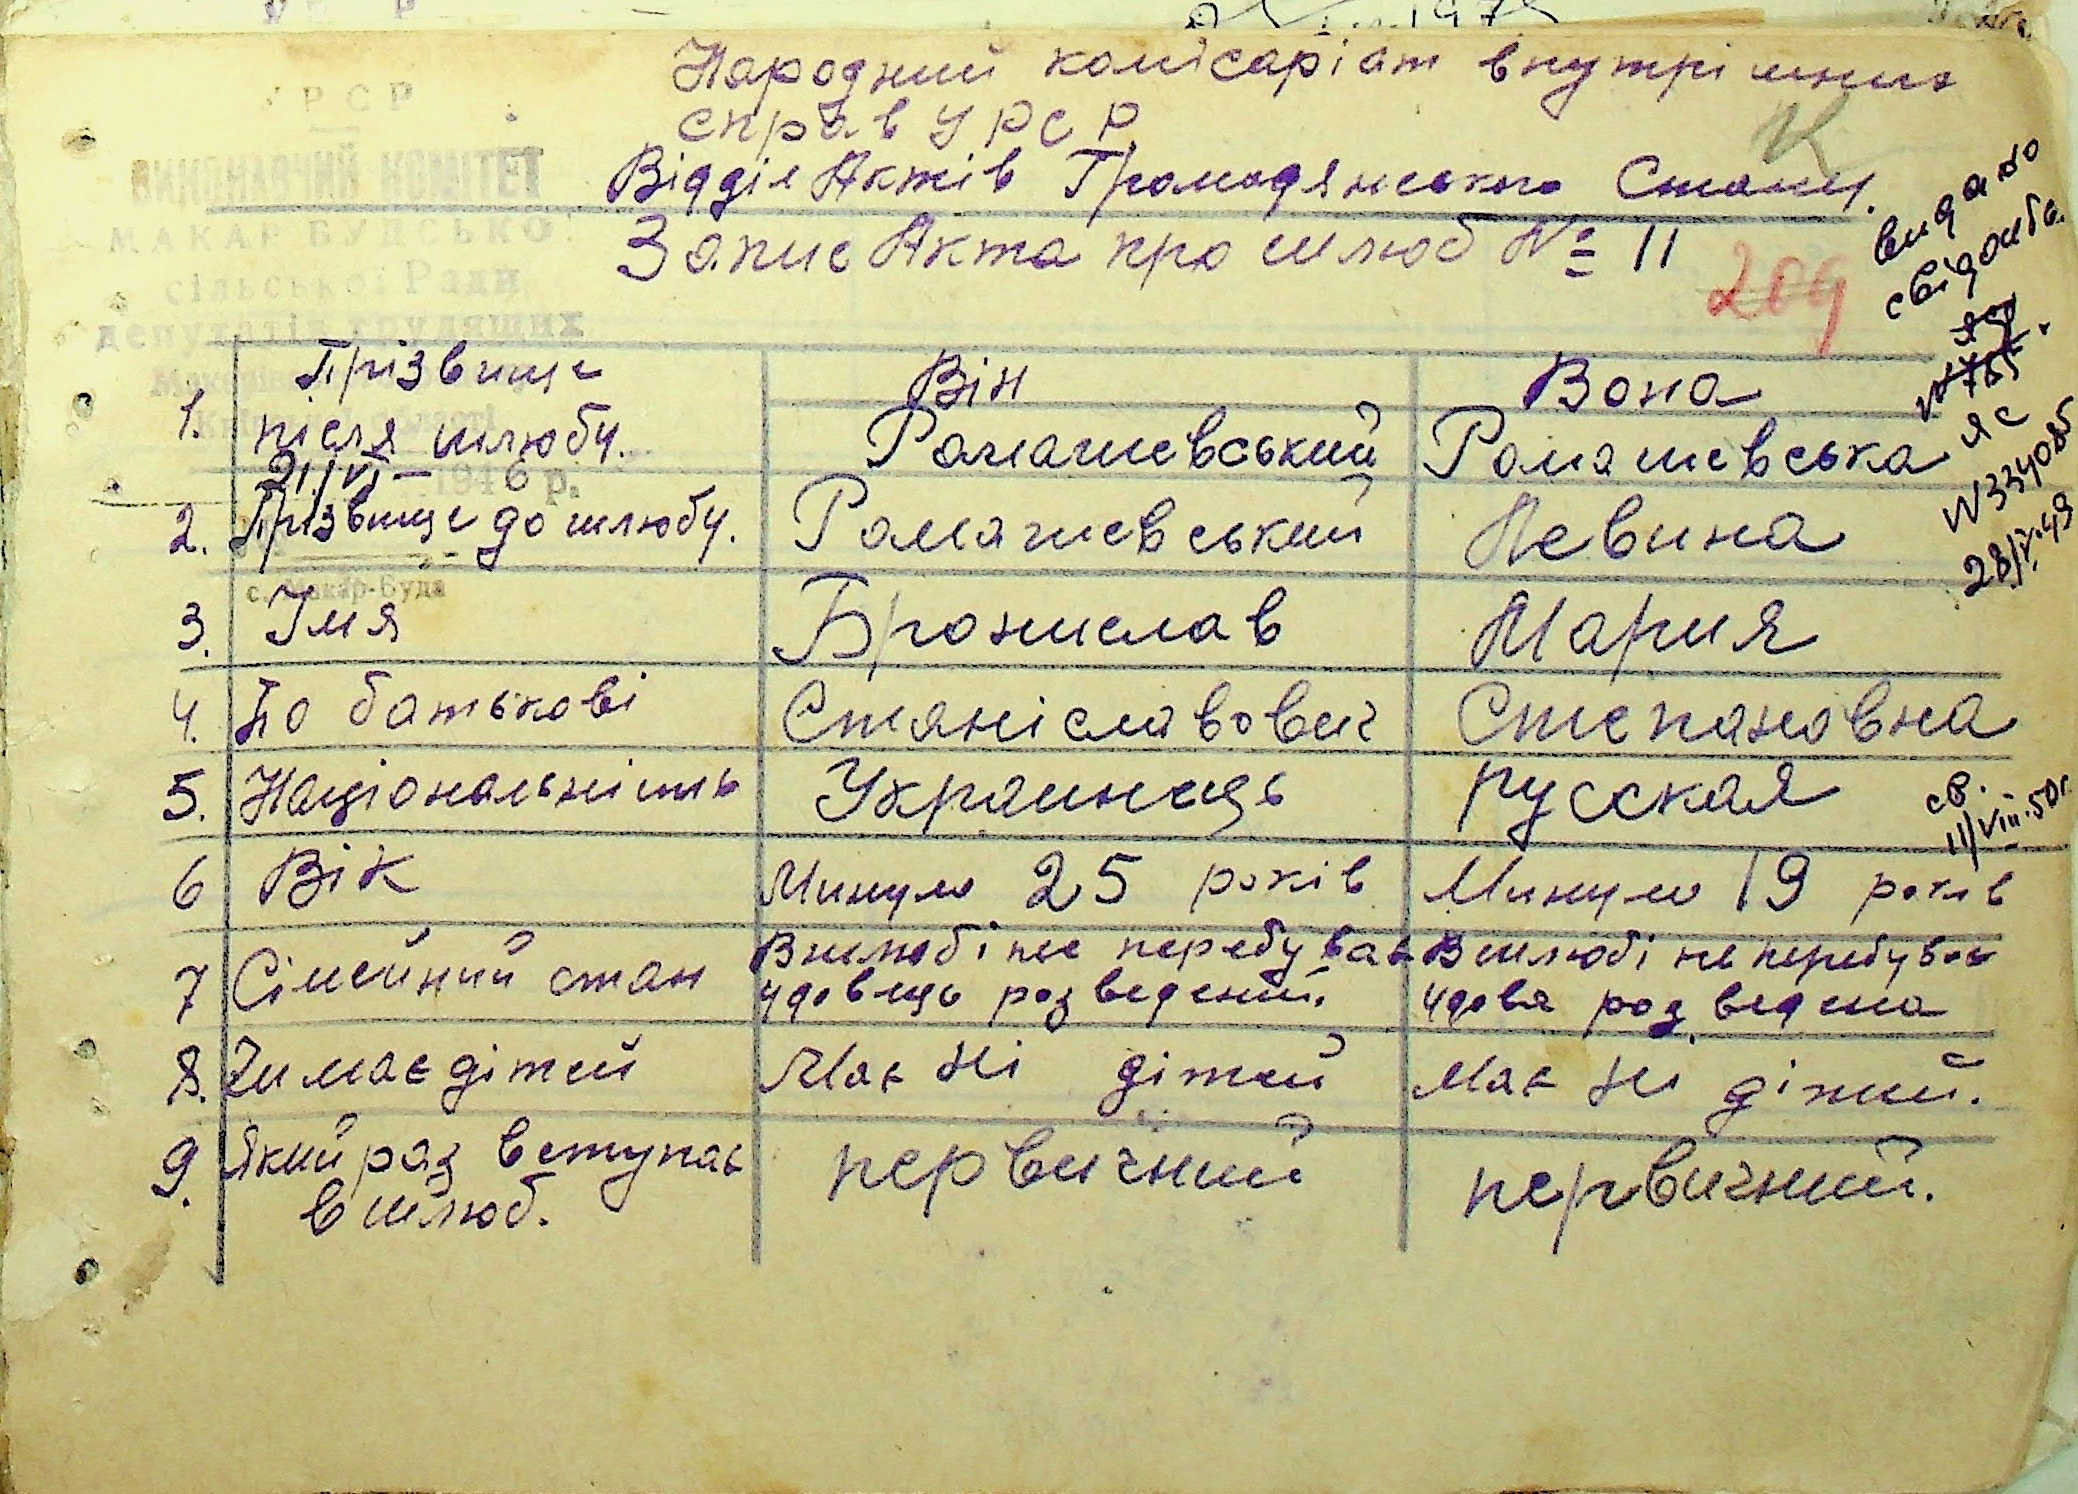 Народний комісаріат внутрішніх
справ УРСР
Відділ Актів Громодянського Стану.
Запис Акта про шлюб № 11
209
УРСР
ВИКОНАВЧИЙ КОМІТЕТ
МАКАР БУДСЬКО
сільської Ради
депутатів трудящих
21/VI – 1946 р.
с. Макар-Буда
Прізвище Він Вона
1. після шлюбу. Ромашевський Ромашевська
2. Прізвище до шлюбу. Ромашевський Певина
3. Імя Бронислав Мария
4. По батькові Станіславович Степановна
5. Національність Украинець русская
6 Вік Минуло 25 років Минуло 19 років
7 Сімейний стан В шлюбі не перебував В шлюбі не перебував
удовець розведений. удова розведена
8. Чи має дітей Має Ні дітей Має Ні дітей.
9. Який раз вступає первичний первичний.
в шлюб.
видано
свідоитво
ЯС
N 334085
28/IV.49
св.
11/VIII.50 г.